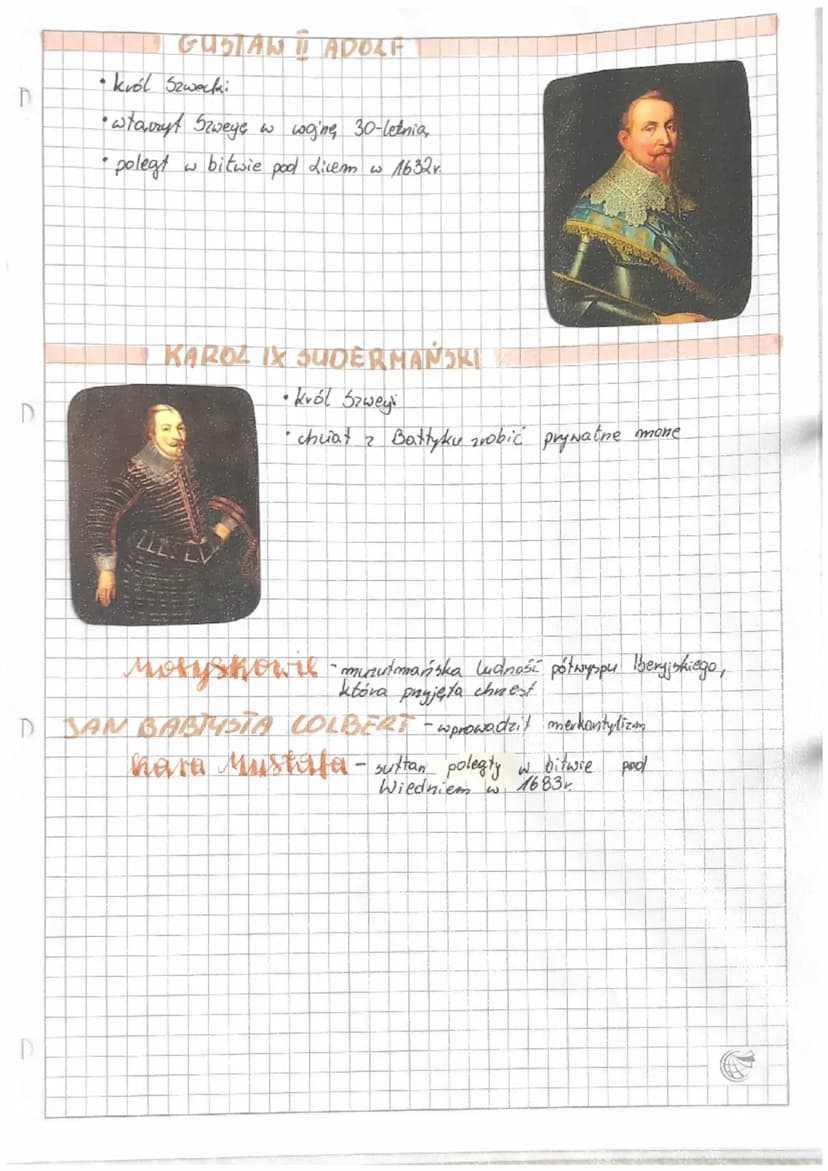 GUSTAW II ADOLF
• król Szwecki
• wtaczył Szwecję w wojnę 30-letnią
• poległ w bitwie pod Licem w 1632r.
KAROL IX SUDERMAŃSKI
• król Szwecji
• chciał z Bałtyku zrobić prywatne morze
Moryskowie - muzułmańska ludność półwyspu Iberyjskiego,
która przyjęła chrzest
JAN BABTYSTA COLBERT - wprowadził merkantylizm
Kara Mustafa - sułtan poległy w bitwie pod
Wiedniem w 1683r.